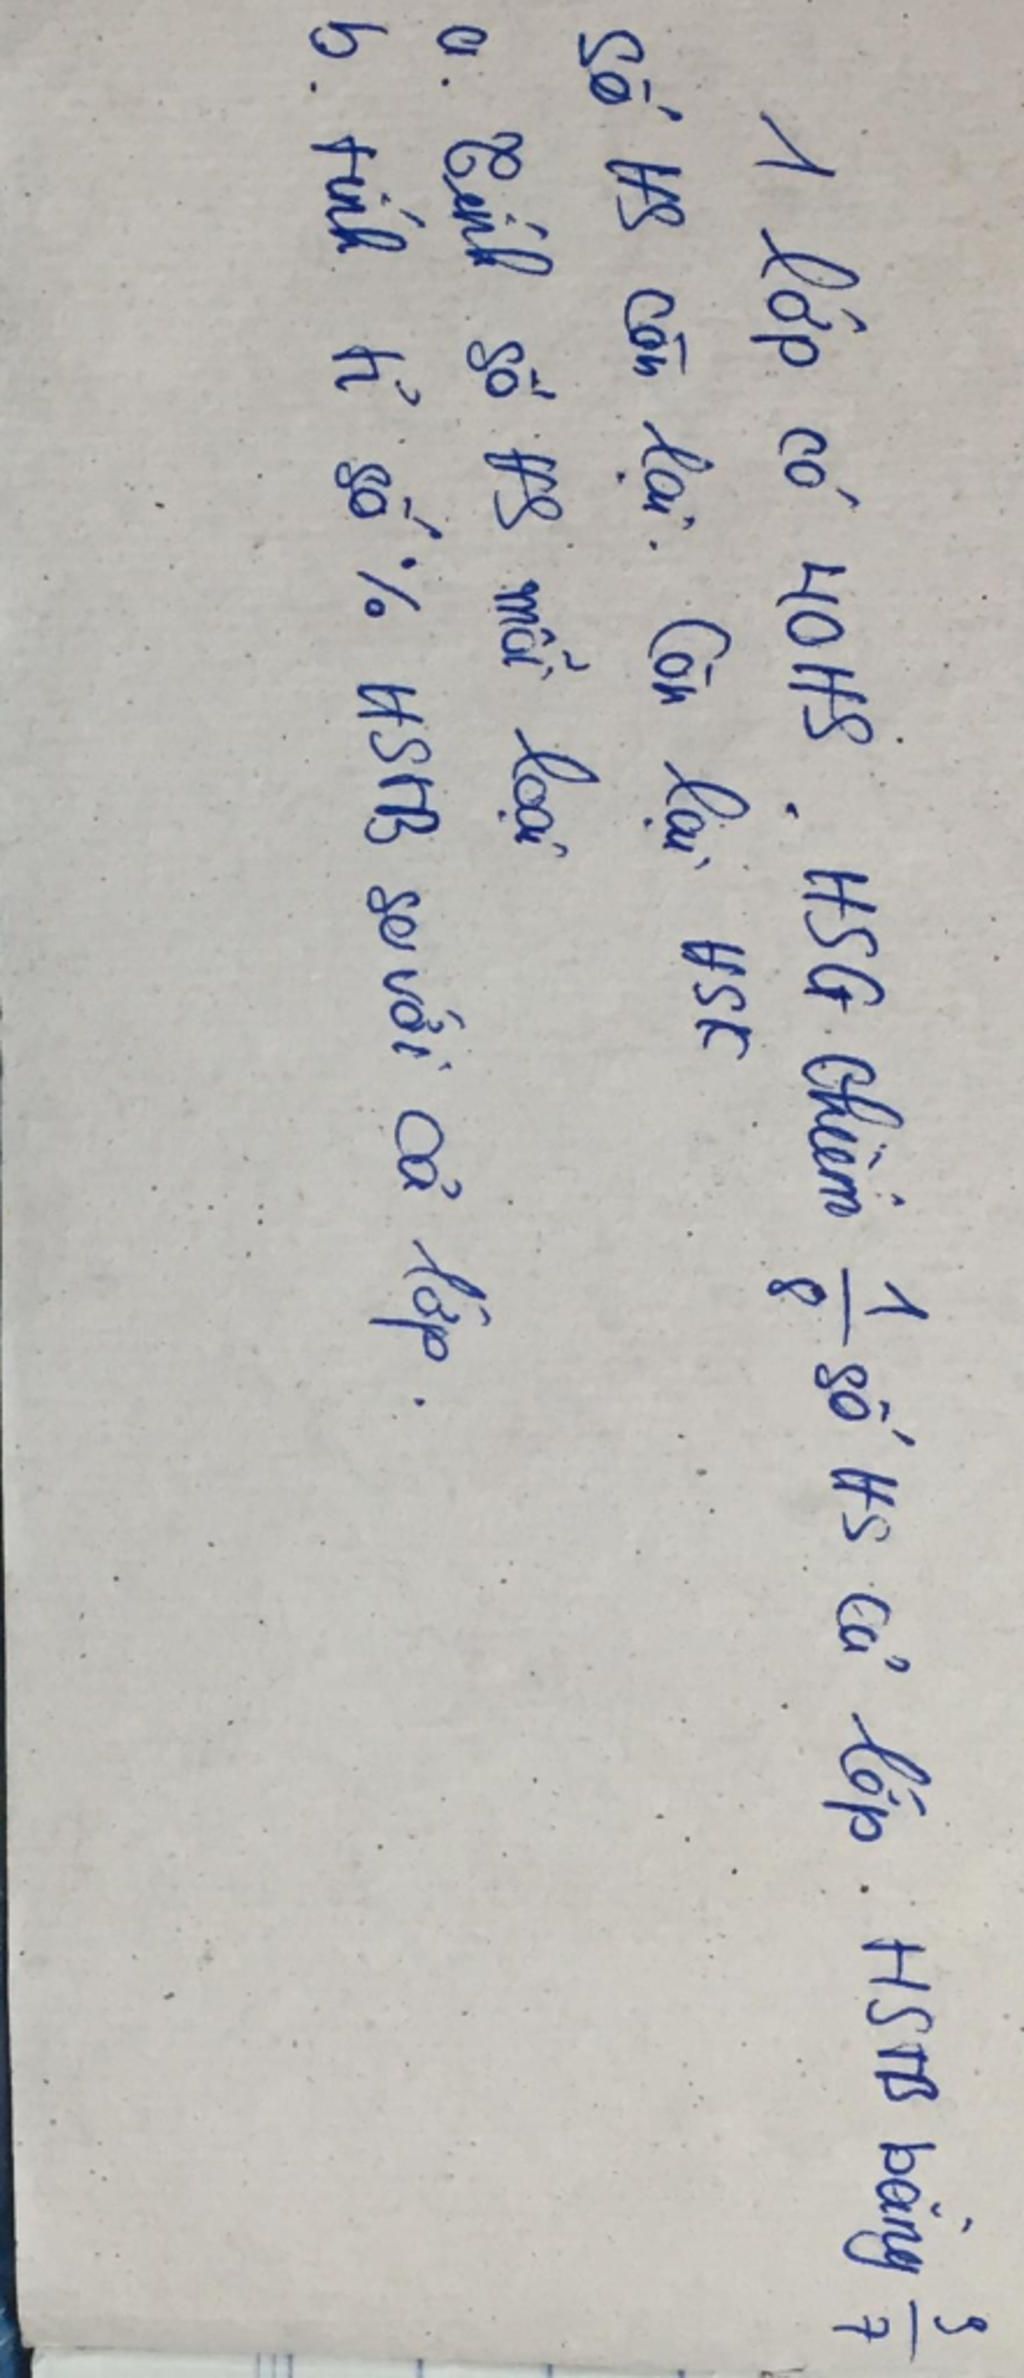 1 lớp có 40HS. HSG chiếm 1/8 số HS cả lớp. HSTB bằng /7
số HS còn lại. Còn lại HSK
a. Tính số HS mỗi loại
b. tính tỉ số % HSTB so với cả lớp.